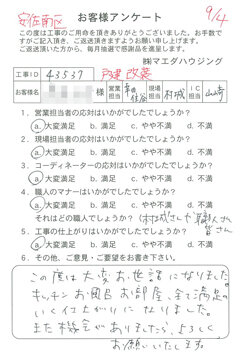 安佐南区
お客様アンケート
9/4
この度は工事のご用命を頂きありがとうございました。お手数で
すがご記入頂き、ご返送頂きますようお願い申し上げます。
ご返送頂いた方から、毎月抽選で感謝品を進呈します。
㈱マエダハウジング
工事ID 43537 戸建 改装
お客様名 様 営業担当 現場担当 村城 IC担当 山崎
1. 営業担当者の応対はいかがでしたでしょうか?
a. 大変満足 b. 満足 c. やや不満 d. 不満
2. 現場担当者の応対はいかがでしたでしょうか?
a. 大変満足 b. 満足 c. やや不満 d. 不満
3. コーディネーターの応対はいかがでしたでしょうか?
a. 大変満足 b. 満足 c. やや不満 d. 不満
4. 職人のマナーはいかがでしたでしょうか?
a. 大変満足 b. 満足 c. やや不満 d. 不満
それはどの職人でしょうか?( さん 職人さん
皆さん
5. 工事の仕上がりはいかがでしたでしょうか?
a. 大変満足 b. 満足 c. やや不満 d. 不満
6. その他、ご意見・ご要望をお書き下さい。
この度は大変お世話になりました。
キッチン お風呂 お部屋、全て満足の
いく仕上がりになりました。
また機会がありましたら、よろしく
お願いいたします